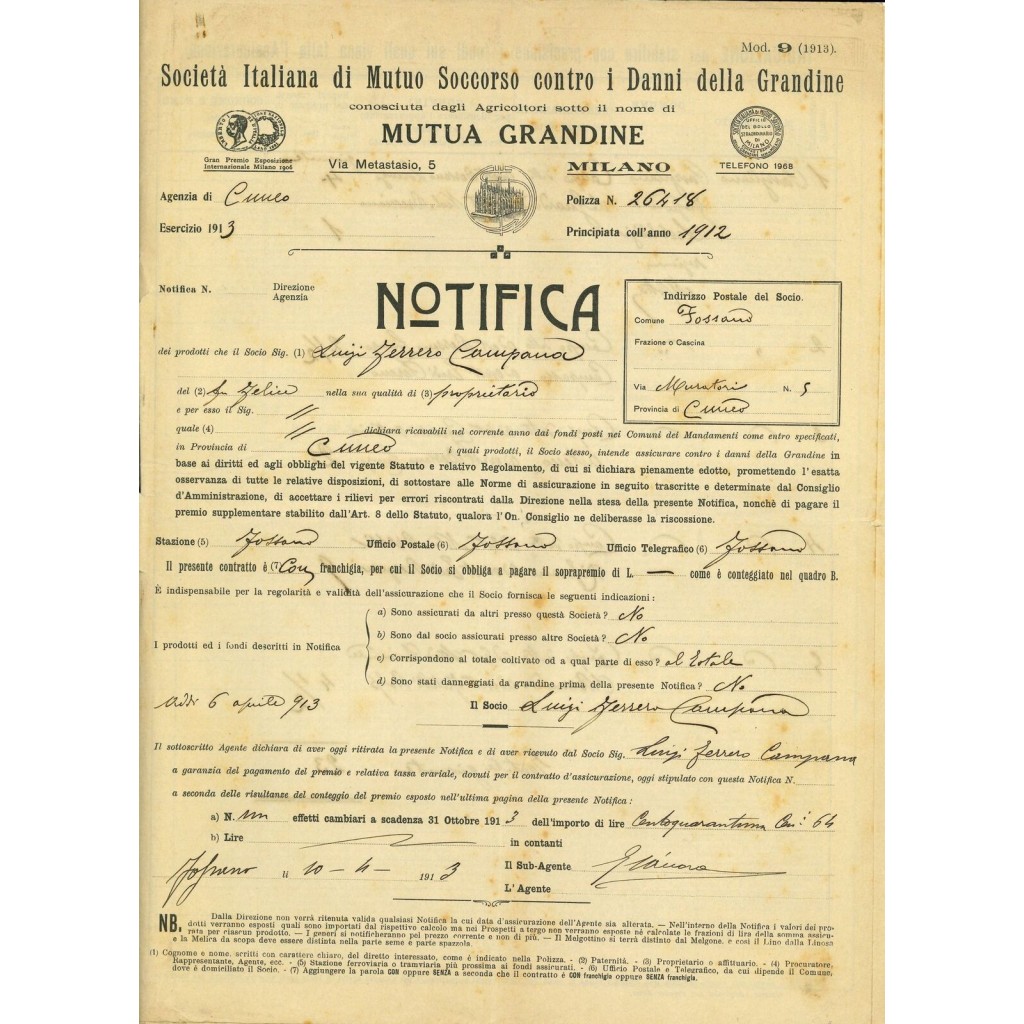 Mod. 9 (1913).
Società Italiana di Mutuo Soccorso contro i Danni della Grandine
conosciuta dagli Agricoltori sotto il nome di
MUTUA GRANDINE
Gran Premio Esposizione
Internazionale Milano 1906
Via Metastasio, 5
MILANO
TELEFONO 1968
Agenzia di Cuneo
Polizza N. 26418
Esercizio 1913
Principiata coll'anno 1912
Notifica N.
Direzione
Agenzia
NOTIFICA
Indirizzo Postale del Socio.
Comune Fossano
Frazione o Cascina
Via Muratori N. 5
Provincia di Cuneo
dei prodotti che il Socio Sig. (1) Luigi Ferrero Campana
del (2) fu Felice nella sua qualità di (3) proprietario
e per esso il Sig. //
quale (4) // dichiara ricavabili nel corrente anno dai fondi posti nei Comuni dei Mandamenti come entro specificati,
in Provincia di Cuneo i quali prodotti, il Socio stesso, intende assicurare contro i danni della Grandine in
base ai diritti ed agli obblighi del vigente Statuto e relativo Regolamento, di cui si dichiara pienamente edotto, promettendo l'esatta
osservanza di tutte le relative disposizioni, di sottostare alle Norme di assicurazione in seguito trascritte e determinate dal Consiglio
d'Amministrazione, di accettare i rilievi per errori riscontrati dalla Direzione nella stesa della presente Notifica, nonchè di pagare il
premio supplementare stabilito dall'Art. 8 dello Statuto, qualora l'On. Consiglio ne deliberasse la riscossione.
Stazione (5) Fossano Ufficio Postale (6) Fossano Ufficio Telegrafico (6) Fossano
Il presente contratto è (7) Con franchigia, per cui il Socio si obbliga a pagare il soprapremio di L. — come è conteggiato nel quadro B.
È indispensabile per la regolarità e validità dell'assicurazione che il Socio fornisca le seguenti indicazioni :
I prodotti ed i fondi descritti in Notifica
a) Sono assicurati da altri presso questa Società ? No
b) Sono dal socio assicurati presso altre Società ? No
c) Corrispondono al totale coltivato od a qual parte di esso ? al totale
d) Sono stati danneggiati da grandine prima della presente Notifica ? No
Addì 6 aprile 913
Il Socio Luigi Ferrero Campana
Il sottoscritto Agente dichiara di aver oggi ritirata la presente Notifica e di aver ricevuto dal Socio Sig. Luigi Ferrero Campana
a garanzia del pagamento del premio e relativa tassa erariale, dovuti per il contratto d'assicurazione, oggi stipulato con questa Notifica N.
a seconda delle risultanze del conteggio del premio esposto nell'ultima pagina della presente Notifica :
a) N. un effetti cambiari a scadenza 31 Ottobre 1913 dell'importo di lire Centoquarantuna Cen: 64
b) Lire — in contanti
Fossano li 10-4-1913
Il Sub-Agente
L'Agente
NB. Dalla Direzione non verrà ritenuta valida qualsiasi Notifica la cui data d'assicurazione dell'Agente sia alterata. — Nell'interno della Notifica i valori dei prodotti
verranno esposti quali sono importati dal rispettivo calcolo ma nei Prospetti a tergo non verranno esposte nè calcolate le frazioni di lira della somma assicurata
per ciascun prodotto. — I generi si notificheranno pel prezzo corrente e non di più. — Il Melgottino si terrà distinto dal Melgone. e così il Lino dalla Linosa
e la Melica da scopa deve essere distinta nella parte seme e parte spazzola.
(1) Cognome e nome, scritti con carattere chiaro, del diretto interessato, come è indicato nella Polizza. - (2) Paternità. - (3) Proprietario o affittuario. - (4) Procuratore,
Rappresentante, Agente, ecc. - (5) Stazione ferroviaria o tramviaria più prossima ai fondi assicurati. - (6) Ufficio Postale e Telegrafico, da cui dipende il Comune,
dove è domiciliato il Socio. - (7) Aggiungere la parola CON oppure SENZA a seconda che il contratto è CON franchigia oppure SENZA franchigia.